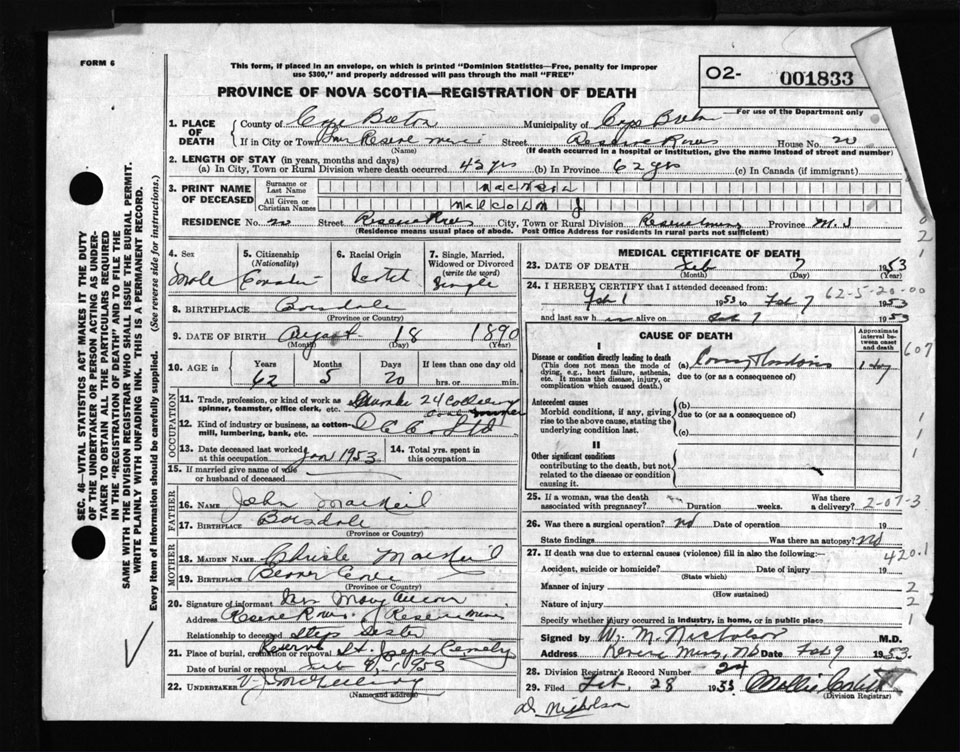 FORM 6
This form, if placed in an envelope, on which is printed "Dominion Statistics—Free, penalty for improper
use $300," and properly addressed will pass through the mail "FREE"
O2- 001833
PROVINCE OF NOVA SCOTIA—REGISTRATION OF DEATH
For use of the Department only
1. PLACE OF DEATH
County of Cape Breton Municipality of Cape Breton
If in City or Town Reserve Mines Street Reserve Rows House No. 20
(Name) (If death occurred in a hospital or institution, give the name instead of street and number)
2. LENGTH OF STAY (in years, months and days)
(a) In City, Town or Rural Division where death occurred 42 yrs (b) In Province 62 yrs (c) In Canada (if immigrant)
3. PRINT NAME OF DECEASED
Surname or Last Name MacNeil
All Given or Christian Names Malcolm J
RESIDENCE No. 20 Street Reserve Rows City, Town or Rural Division Reserve Mines Province N.S
(Residence means usual place of abode. Post Office Address for residents in rural parts not sufficient)
4. Sex Male
5. Citizenship (Nationality) Canadian
6. Racial Origin Scotch
7. Single, Married, Widowed or Divorced (write the word) Single
8. BIRTHPLACE Boisdale
(Province or Country)
9. DATE OF BIRTH August 18 1890
(Month) (Day) (Year)
10. AGE in Years 62 Months 5 Days 20 If less than one day old hrs. or min.
OCCUPATION
11. Trade, profession, or kind of work as spinner, teamster, office clerk, etc. 24 Colliery
12. Kind of industry or business, as cotton-mill, lumbering, bank, etc.
13. Date deceased last worked at this occupation Jan 1953
14. Total yrs. spent in this occupation
15. If married give name of wife or husband of deceased
FATHER
16. NAME John MacNeil
17. BIRTHPLACE Boisdale
(Province or Country)
MOTHER
18. MAIDEN NAME Christie MacNeil
19. BIRTHPLACE Beaver Cove
(Province or Country)
20. Signature of informant Mrs Mary
Address Reserve Rows, Reserve Mines
Relationship to deceased Step Sister
21. Place of burial, cremation or removal Reserve St. Joseph Cemetery
Date of burial or removal Feb 9, 1953
22. UNDERTAKER V. J.
(Name and address)
MEDICAL CERTIFICATE OF DEATH
23. DATE OF DEATH Feb 7 1953
(Month) (Day) (Year)
24. I HEREBY CERTIFY that I attended deceased from:
Feb 1 1953 to Feb 7 1953
62-5-20-00
and last saw him alive on Feb 7 1953
CAUSE OF DEATH
Approximate interval between onset and death
607
I
Disease or condition directly leading to death
(This does not mean the mode of dying, e.g., heart failure, asthenia, etc. It means the disease, injury, or complication which caused death.)
(a) Coronary Thrombosis 1 day
due to (or as a consequence of)
Antecedent causes
Morbid conditions, if any, giving rise to the above cause, stating the underlying condition last.
(b)
due to (or as a consequence of)
(c)
II
Other significant conditions
contributing to the death, but not related to the disease or condition causing it.
25. If a woman, was the death associated with pregnancy? Duration weeks. Was there a delivery?
2-07-3
26. Was there a surgical operation? no Date of operation 19
State findings Was there an autopsy? No
27. If death was due to external causes (violence) fill in also the following:—
420.1
Accident, suicide or homicide? Date of injury 19
(State which)
Manner of injury
(How sustained)
Nature of injury
Specify whether injury occurred in industry, in home, or in public place
Signed by W. M. Nicholson M.D.
Address Reserve Mines, N.S Date Feb 9 1953.
28. Division Registrar's Record Number 24
29. Filed Feb. 28 1953 Mollie
(Division Registrar)
Dr. Nicholson
SEC. 46—VITAL STATISTICS ACT MAKES IT THE DUTY
OF THE UNDERTAKER OR PERSON ACTING AS UNDER-
TAKER TO OBTAIN ALL THE PARTICULARS REQUIRED
IN THE "REGISTRATION OF DEATH" AND TO FILE THE
SAME WITH THE DIVISION REGISTRAR WHO SHALL ISSUE THE BURIAL PERMIT.
WRITE PLAINLY WITH UNFADING INK. THIS IS A PERMANENT RECORD.
Every item of Information should be carefully supplied. (See reverse side for instructions.)